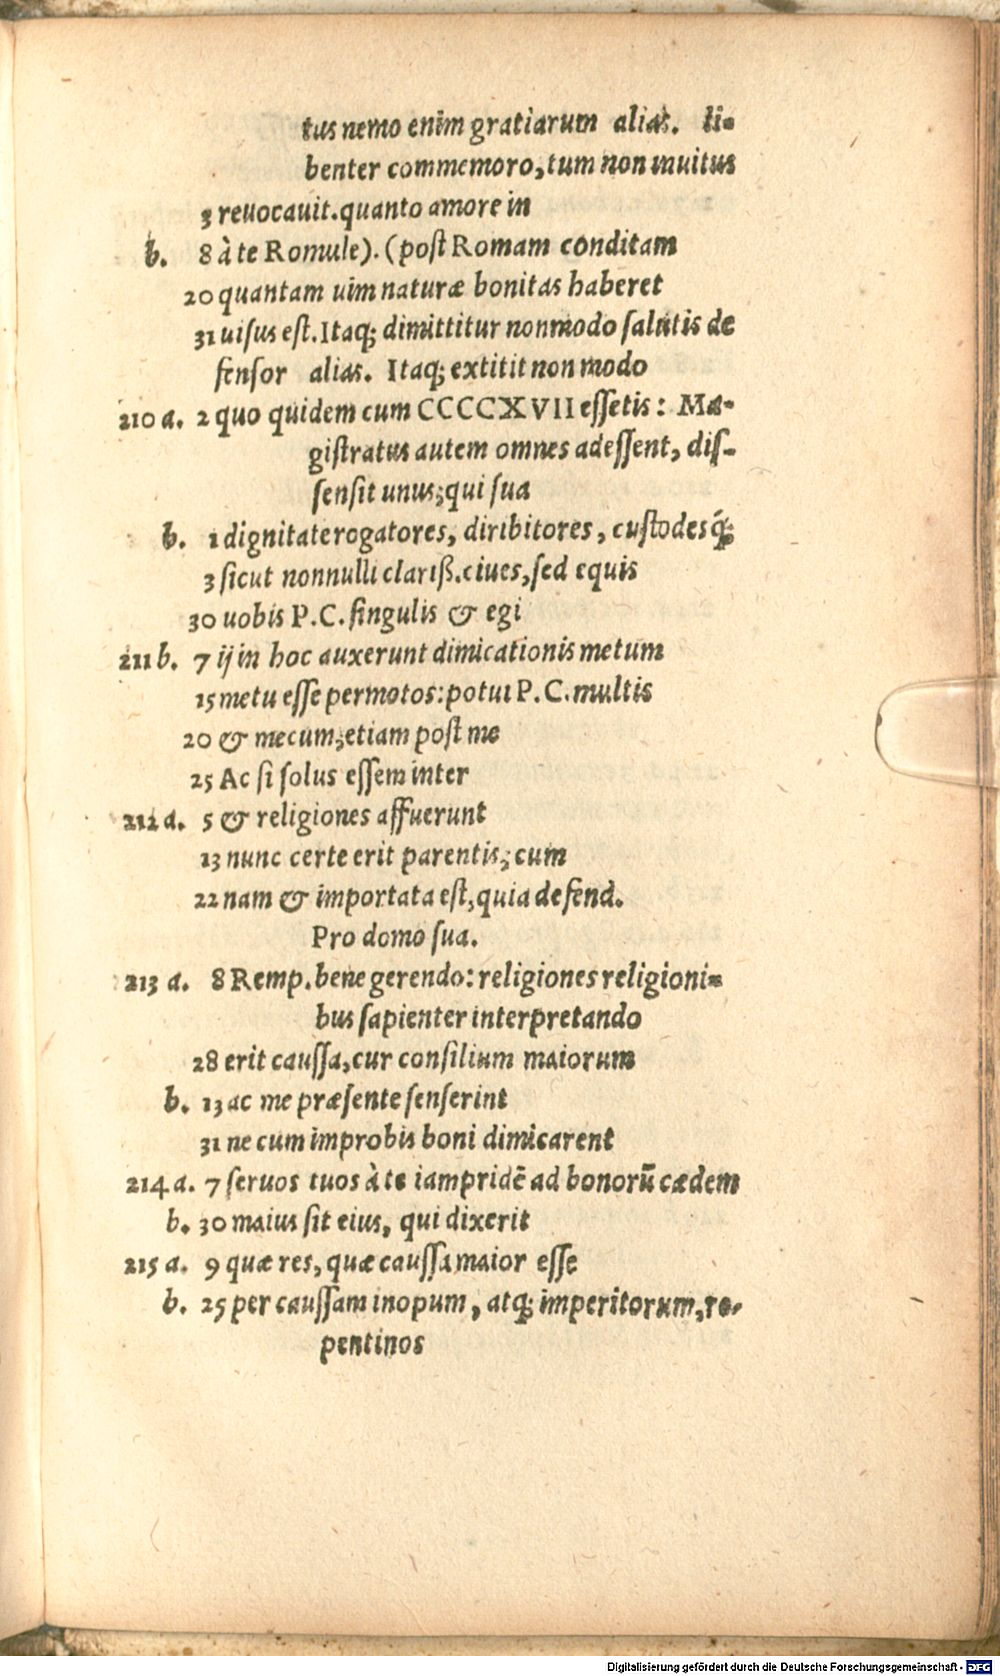 tus nemo enim gratiarum alias. li-
benter commemoro, tum non inuitus
3 reuocauit. quanto amore in
b. 8 à te Romule). (post Romam conditam
20 quantam uim naturæ bonitas haberet
31 uisus est. Itaq; dimittitur nonmodo salutis de
fensor alias. Itaq; extitit non modo
210 a. 2 quo quidem cum CCCCXVII essetis: Ma-
gistratus autem omnes adessent, dis-
sensit unus; qui sua
b. 1 dignitate rogatores, diribitores, custodesq́;
3 sicut nonnulli clariß. ciues, sed equis
30 uobis P. C. singulis & egi
211 b. 7 ij in hoc auxerunt dimicationis metum
15 metu esse permotos: potui P. C. multis
20 & mecum; etiam post me
25 Ac si solus essem inter
212 a. 5 & religiones affuerunt
13 nunc certe erit parentis; cum
22 nam & importata est, quia defend.
Pro domo sua.
213 a. 8 Remp. bene gerendo: religiones religioni-
bus sapienter interpretando
28 erit caussa, cur consilium maiorum
b. 13 ac me præsente senserint
31 ne cum improbis boni dimicarent
214 a. 7 seruos tuos à te iampridē ad bonorū cædem
b. 30 maius sit eius, qui dixerit
215 a. 9 quæ res, quæ caussa maior esse
b. 25 per caussam inopum, atq; imperitorum, re-
pentinos
Digitalisierung gefördert durch die Deutsche Forschungsgemeinschaft - DFG